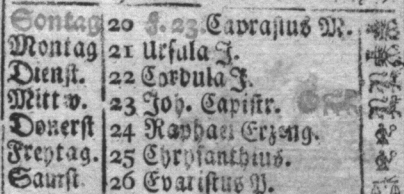 Sontag 20 F. 23. Caprasius M.
Montag 21 Ursula J.
Dienst. 22 Cordula J.
Mittw. 23 Joh. Capistr.
Donerst 24 Raphael Erzeng.
Freytag. 25 Chrysanthius.
Samst 26 Evaristus P.